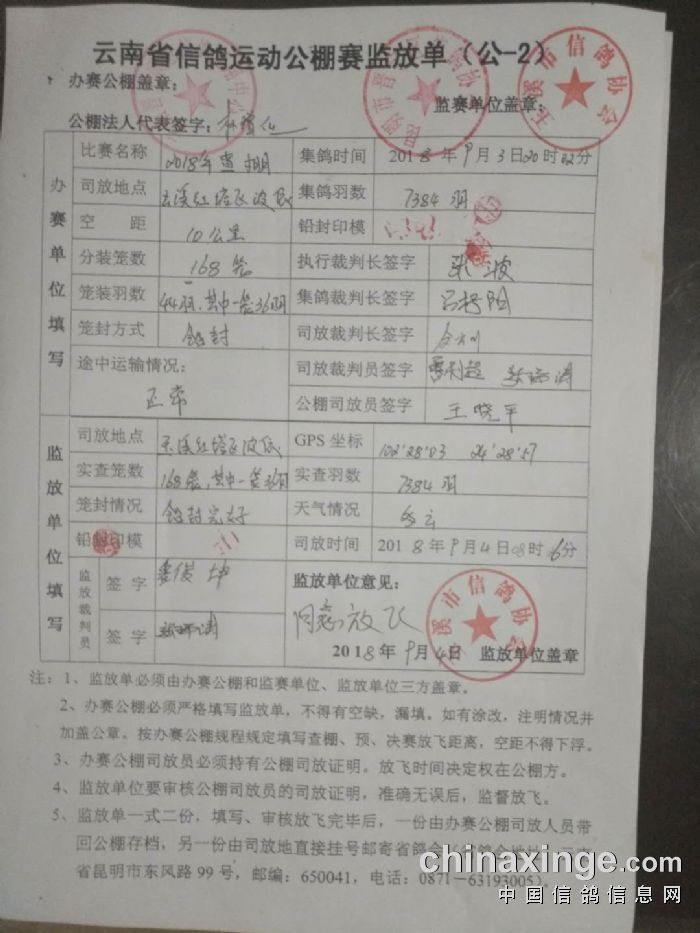 云南省信鸽运动公棚赛监放单（公-2）
办赛公棚盖章：
监赛单位盖章：
玉溪市信鸽协会
公棚法人代表签字：
办赛单位填写
比赛名称 2018年查棚 集鸽时间 2018年9月3日20时22分
司放地点 玉溪红塔区波衣 集鸽羽数 7384羽
空距 10公里 铅封印模
分装笼数 168笼 执行裁判长签字 张波
笼装羽数 44羽,其中一笼36羽 集鸽裁判长签字
笼封方式 铅封 司放裁判长签字
途中运输情况： 司放裁判员签字
正常 公棚司放员签字 王晓平
监放单位填写
司放地点 玉溪红塔区波衣 GPS坐标 102°28'03 24°28'57
实查笼数 168笼,其中一笼36羽 实查羽数 7384羽
笼封情况 铅封完好 天气情况 多云
铅封印模 司放时间 2018年9月4日08时06分
监放裁判员 签字 监放单位意见：
同意放飞
签字
玉溪市信鸽协会
2018年9月4日 监放单位盖章
注：1、监放单必须由办赛公棚和监赛单位、监放单位三方盖章。
2、办赛公棚必须严格填写监放单，不得有空缺，漏填。如有涂改，注明情况并
加盖公章。按办赛公棚规程规定填写查棚、预、决赛放飞距离，空距不得下浮。
3、办赛公棚司放员必须持有公棚司放证明。放飞时间决定权在公棚方。
4、监放单位要审核公棚司放员的司放证明，准确无误后，监督放飞。
5、监放单一式二份，填写、审核放飞完毕后，一份由办赛公棚司放人员带
回公棚存档，另一份由司放地直接挂号邮寄省鸽会
省昆明市东风路99号，邮编：650041，电话：0871-63193005）。
chinaxinge.com
中国信鸽信息网